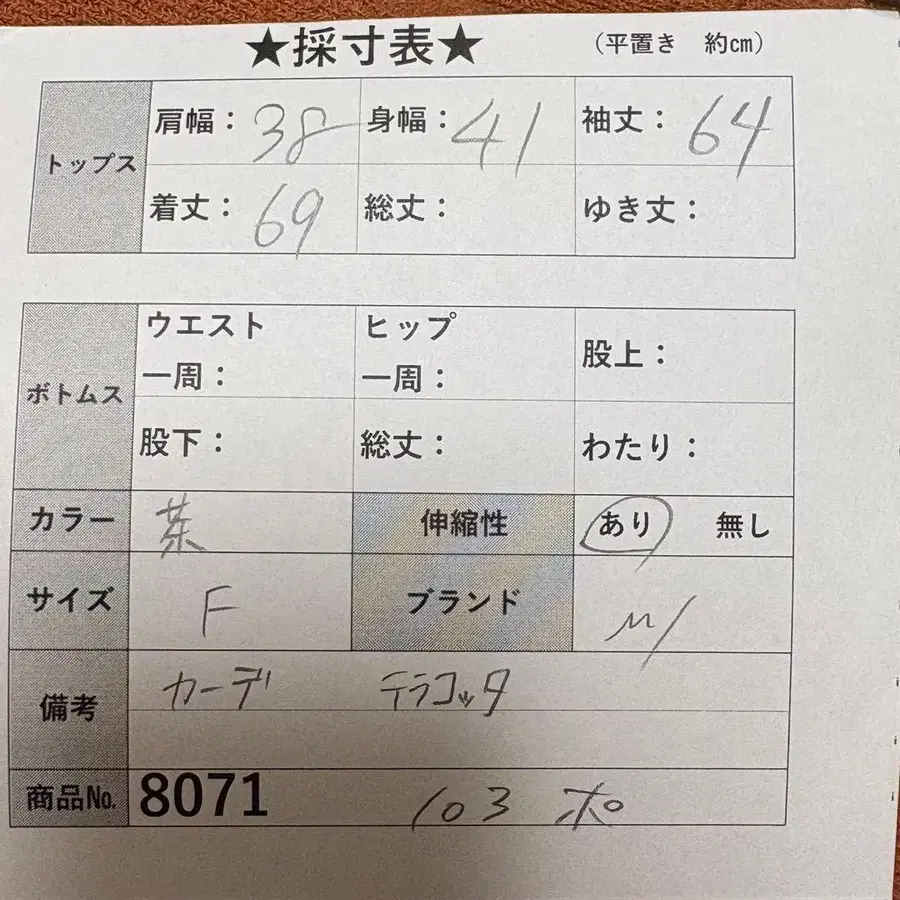 ★採寸表★ （平置き 約㎝）
トップス
肩幅：38 身幅：41 袖丈：64
着丈：69 総丈： ゆき丈：
ボトムス
ウエスト ヒップ
一周： 一周： 股上：
股下： 総丈： わたり：
カラー 茶 伸縮性 あり 無し
サイズ F ブランド
備考 カーデ テラコッタ
商品№ 8071 103 ポ